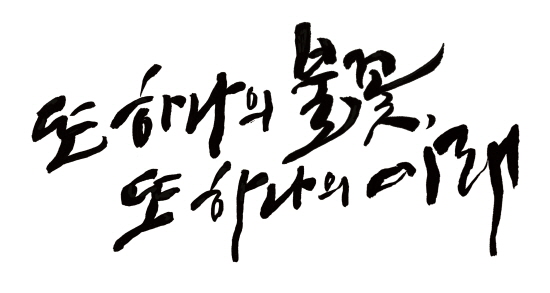 또 하나의 불꽃,
또 하나의 미래